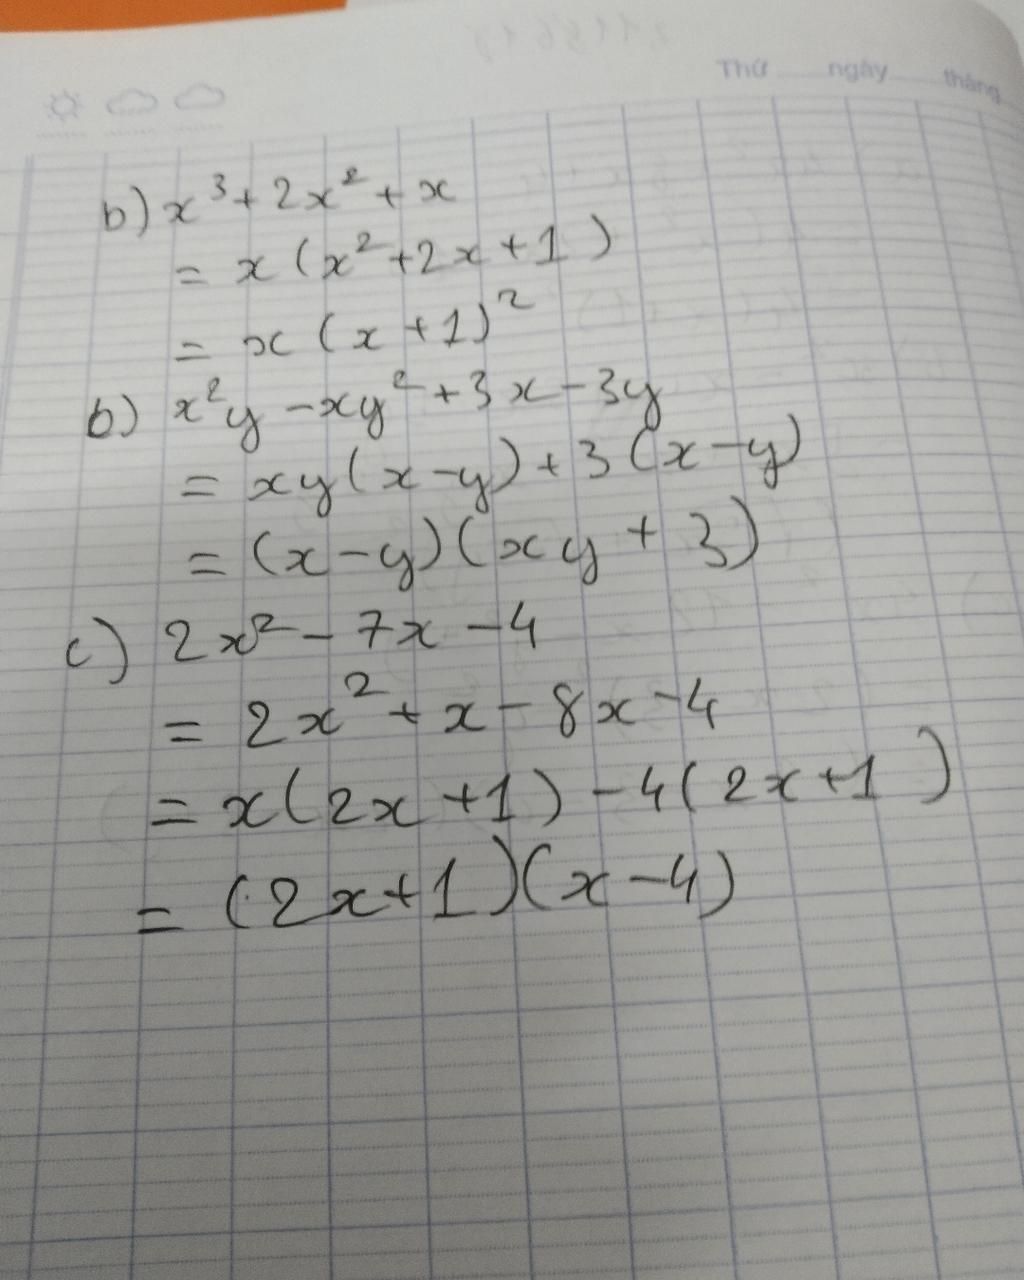 Thứ ngày tháng
b) x³ + 2x² + x
= x (x² + 2x + 1)
= x (x + 1)²
b) x²y - xy² + 3x - 3y
= xy(x - y) + 3(x - y)
= (x - y)(xy + 3)
c) 2x² - 7x - 4
= 2x² + x - 8x - 4
= x(2x + 1) - 4(2x + 1)
= (2x + 1)(x - 4)